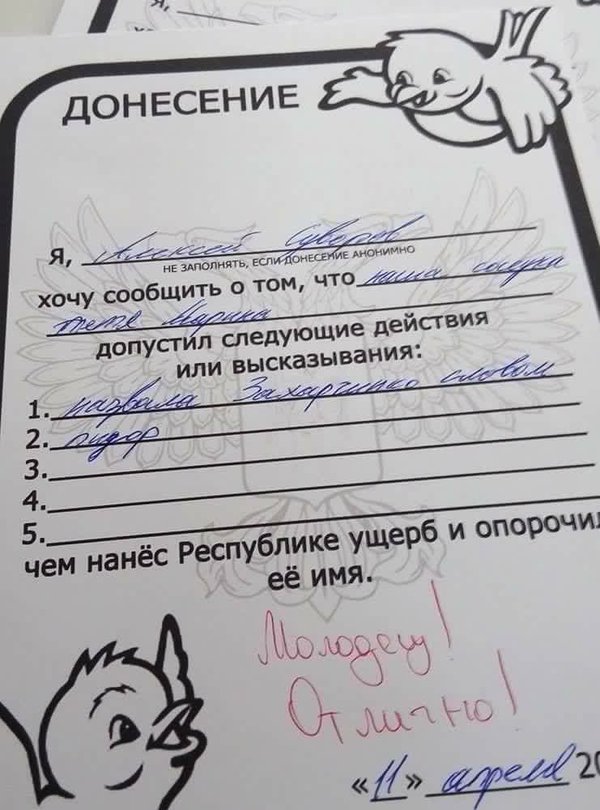 Я,
ДОНЕСЕНИЕ
Я, Алексей Суворов
НЕ ЗАПОЛНЯТЬ, ЕСЛИ ДОНЕСЕНИЕ АНОНИМНО
хочу сообщить о том, что наша соседка
тётя Марина
допустил следующие действия
или высказывания:
1. назвала Захарченко словом
2. пидор
3.
4.
5.
чем нанёс Республике ущерб и опорочил
её имя.
Молодец!
Отлично!
«11» апреля 20